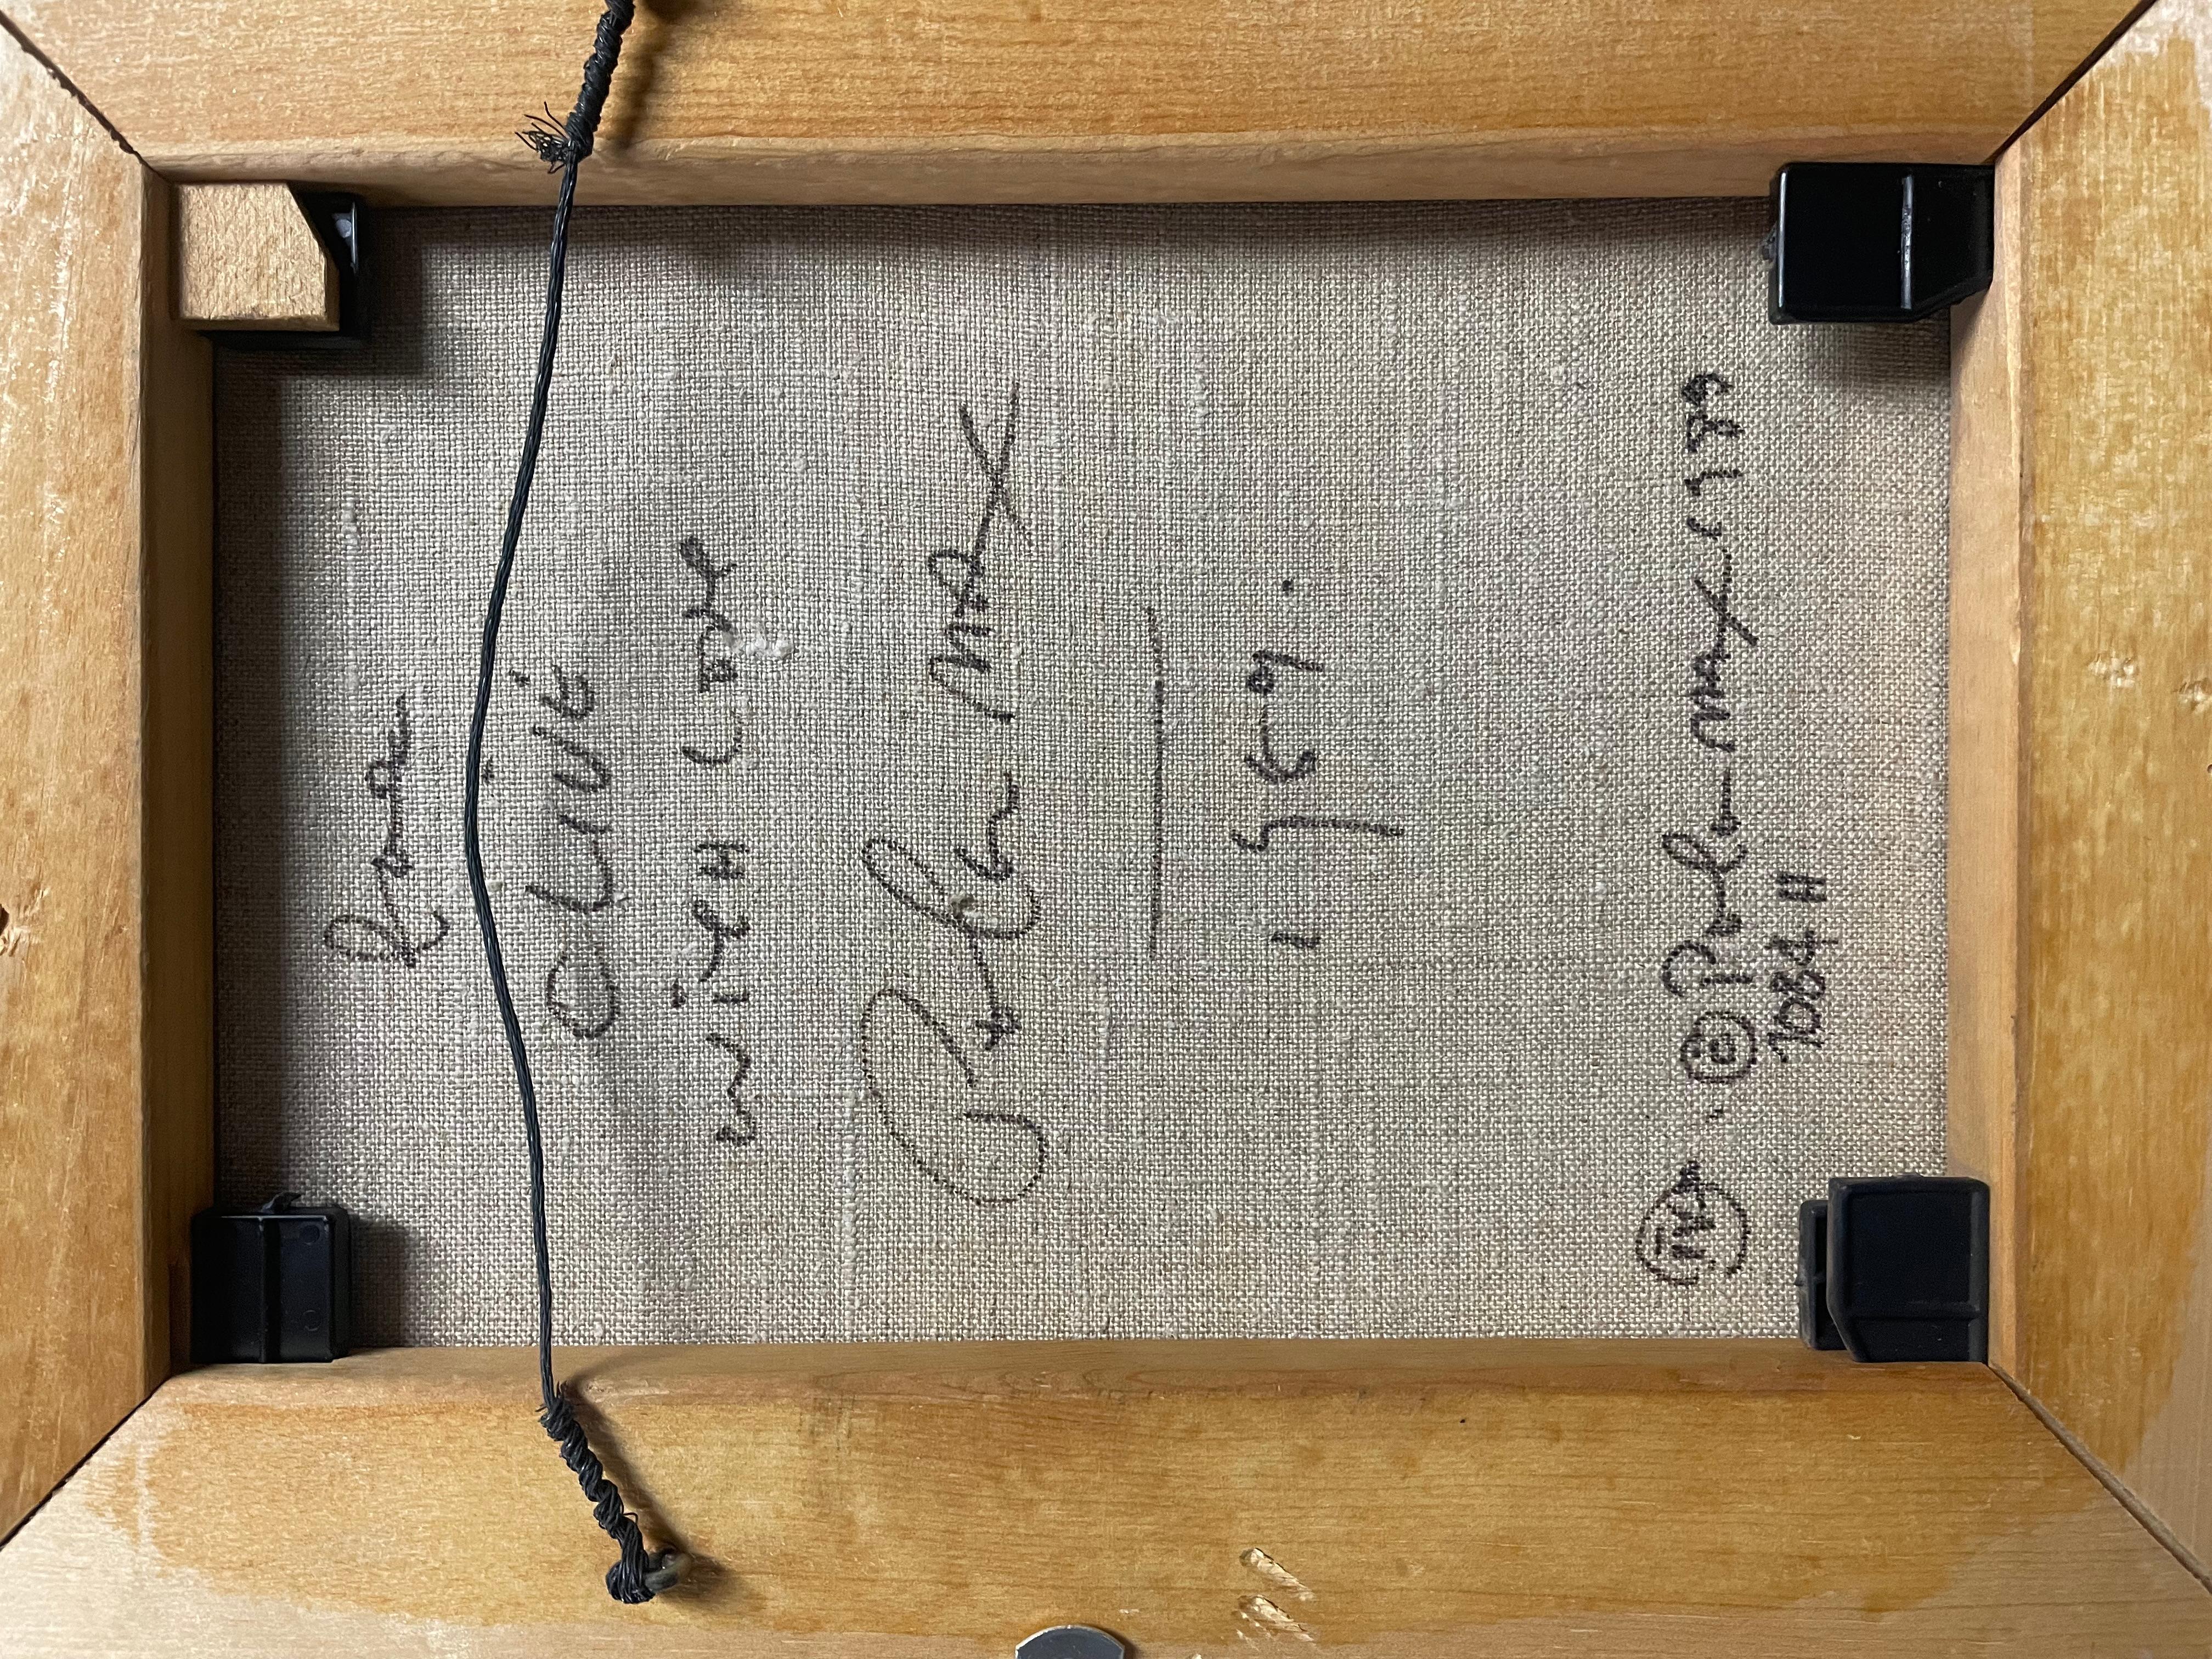 For
Olivia
With Love
Peter Max
1989.
© Peter Max 1989
7084 H